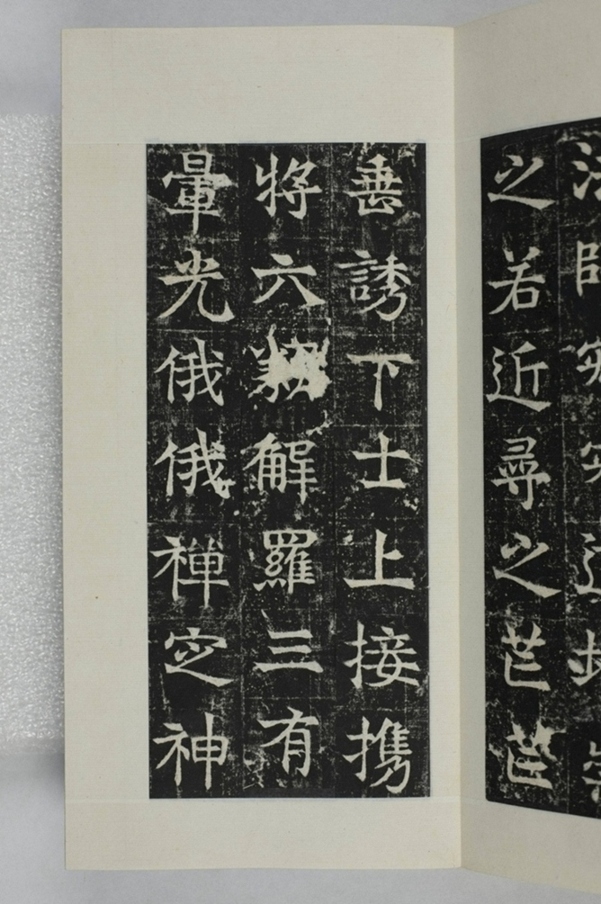 之若近尋之芒芒
垂誘下士上接携
將六解羅三有
暈光俄俄禅定神